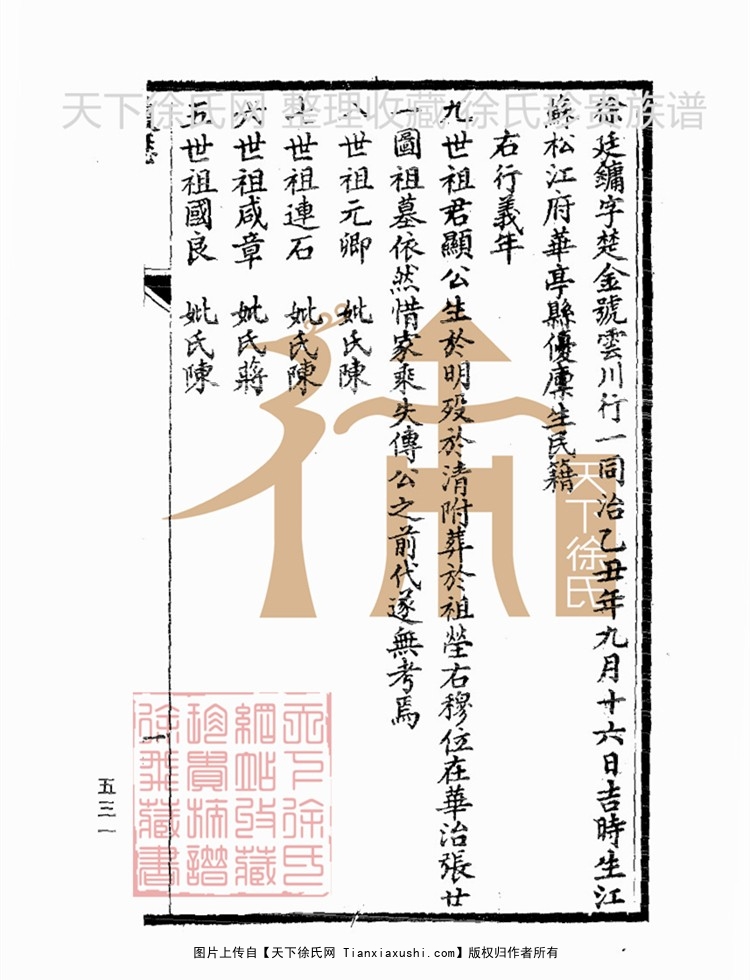 天下徐氏网 整理收藏 徐氏珍贵族谱
徐廷鏞字楚金號雲川行一同治乙丑年九月十六日吉時生江
蘇松江府華亭縣優廩生民籍
右行義年
九世祖君顯公生於明歿於清附葬於祖塋右穆位在華治張廿
一圖祖墓依然惜家乘失傳公之前代遂無考焉
八世祖元卿 妣氏陳
七世祖連石 妣氏陳
六世祖咸章 妣氏蔣
五世祖國良 妣氏陳
一
五三一
天下徐氏
天下徐氏
網站收藏
珍貴族譜
徐氏藏書
图片上传自【天下徐氏网 Tianxiaxushi.com】版权归作者所有